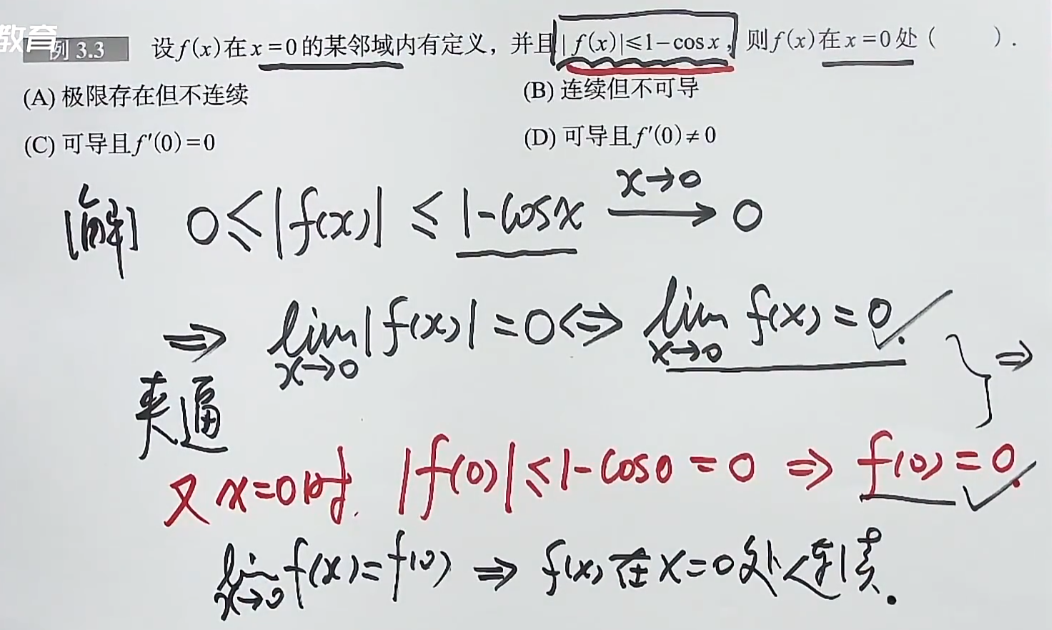 教育
例 3.3 设 f(x) 在 x=0 的某邻域内有定义，并且 |f(x)|≤1-cosx，则 f(x) 在 x=0 处（ ）．
(A) 极限存在但不连续 (B) 连续但不可导
(C) 可导且 f′(0)=0 (D) 可导且 f′(0)≠0
[解] 0≤|f(x)|≤1-cosx x→0 → 0
⇒ lim x→0 |f(x)|=0 ⇔ lim x→0 f(x)=0
夹逼
又 x=0时, |f(0)|≤1-cos0=0 ⇒ f(0)=0. } ⇒
lim x→0 f(x)=f(0) ⇒ f(x)在x=0处连续.